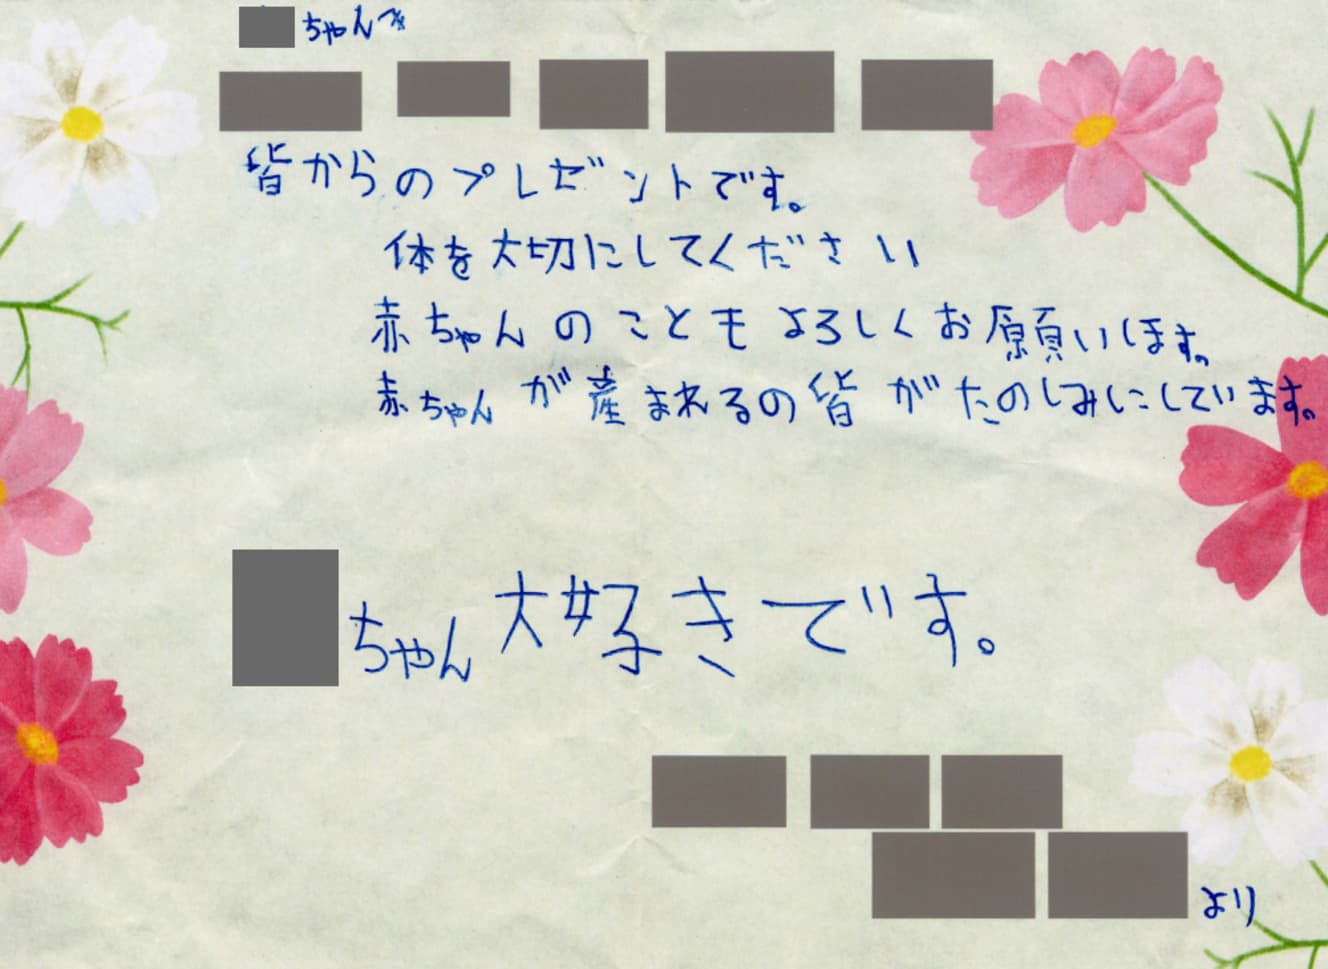 ちゃんへ
皆からのプレゼントです。
体を大切にしてください
赤ちゃんのこともよろしくお願いします。
赤ちゃんが産まれるの皆がたのしみにしています。
ちゃん大好きです。
より